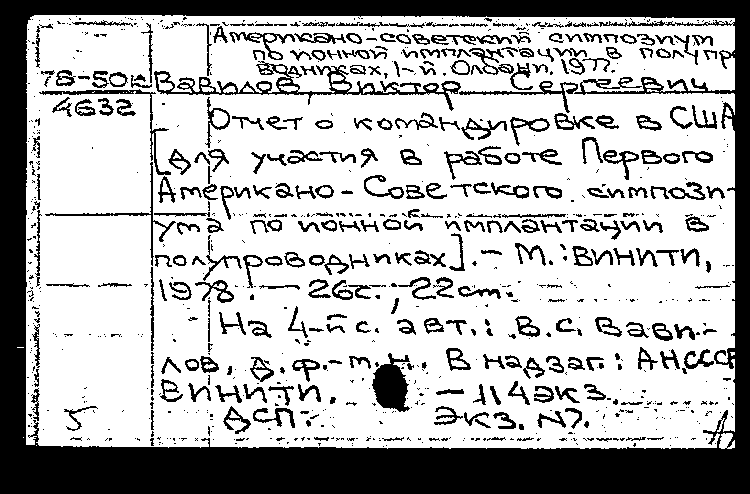 Американо-советский симпозиум
по ионной имплантации в полупро-
водниках, 1-й. Олбани, 1977.
78-50к Вавилов, Виктор Сергеевич
4632 Отчет о командировке в США
[для участия в работе Первого
Американо-Советского симпози-
ума по ионной имплантации в
полупроводниках]. - М.: ВИНИТИ,
1978. - 26с.; 22см.
На 4-й с. авт.: В.С. Вави-
лов, д.ф.-м.н. В надзаг.: АН СССР
ВИНИТИ. - 114экз.
5 ДСП. Экз. N7.